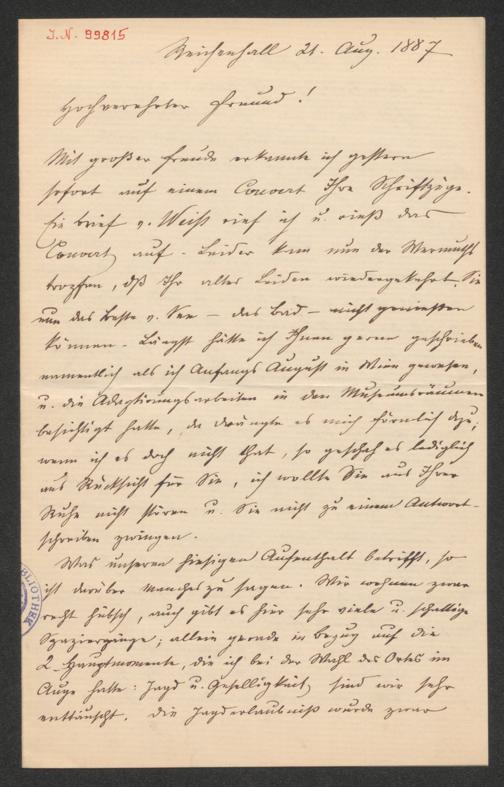 I.N. 99815
Reichenhall 21. Aug. 1887
Hochverehrter Freund!
Mit großer Freude erkannte ich gestern
sofort auf einem Couvert Ihre Schriftzüge.
Ein Brief v. Weiß rief ich u. rieß das
Couvert auf. Leider kam nun der Wermuths
tropfen, dß Ihr altes Leiden wiedergekehrt, Sie
nun das Beste v. See – das Bad – nicht genießen
können. Längst hätte ich Ihnen gerne geschrieben
namentlich als ich Anfangs August in Wien gewesen,
u. die Adaptirungsarbeiten in den Museumsräumen
besichtigt hatte, da drängte es mich förmlich dazu;
wenn ich es doch nicht that, so geschah es lediglich
aus Rücksicht für Sie, ich wollte Sie aus Ihrer
Ruhe nicht stören u. Sie nicht zu einem Antwort-
schreiben zwingen.
Was unseren hiesigen Aufenthalt betrifft, so
ist darüber Manches zu sagen. Wir wohnen zwar
recht hübsch, auch gibt es hier sehr viele u. schattige
Spaziergänge; allein gerade in Bezug auf die
2 Hauptmomente, die ich bei der Wahl des Ortes im
Auge hatte: Jagd u. Geselligkeit, sind wir sehr
enttäuscht. Die Jagderlaubniß wurde zwar
BLIOTHEK